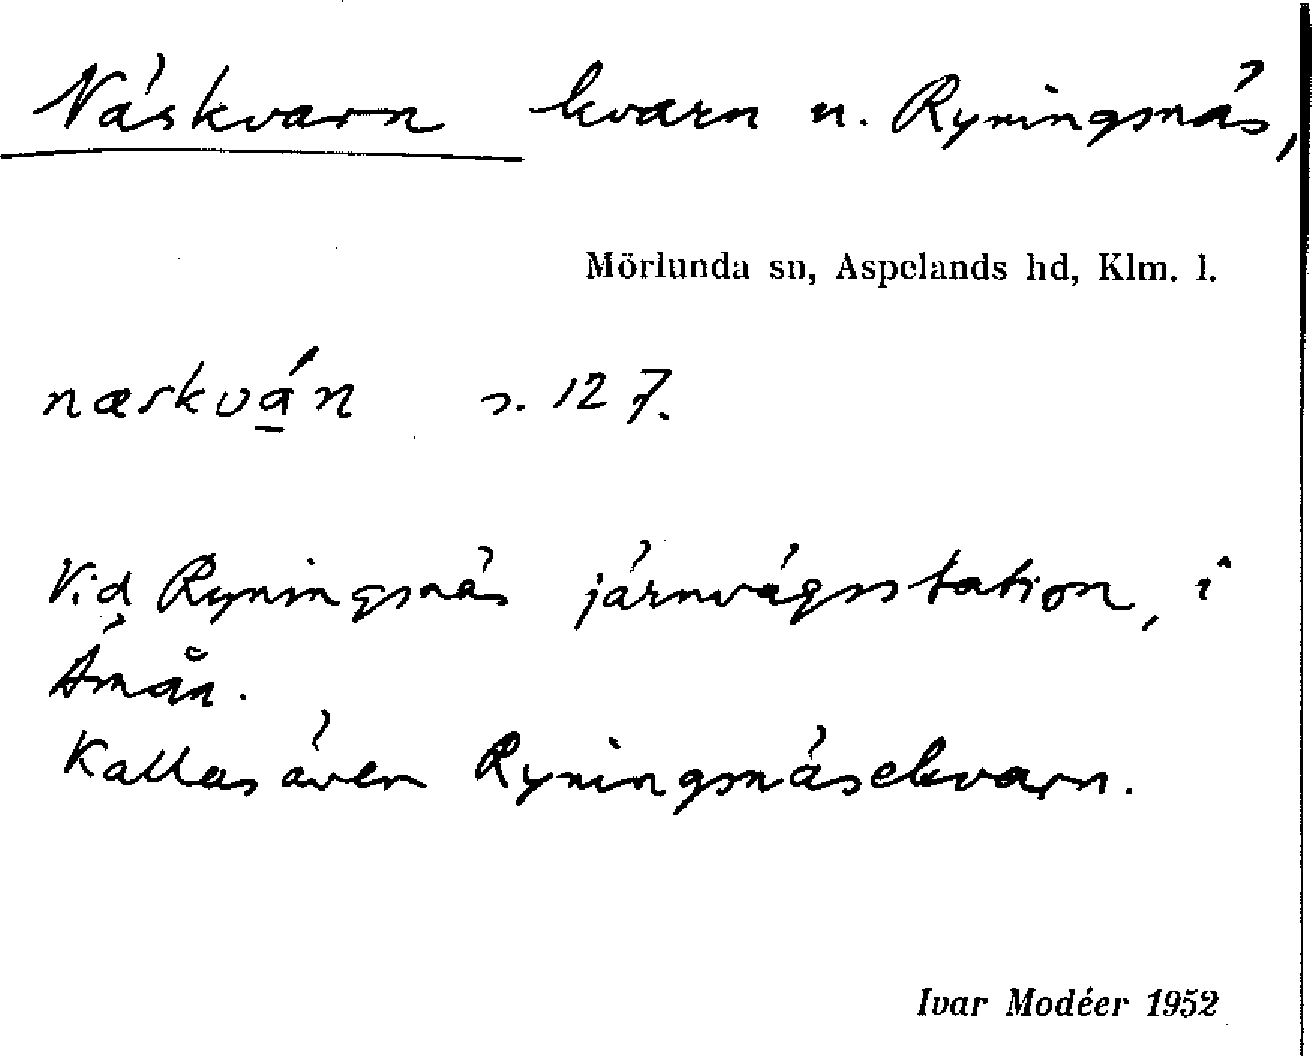 Näskvarn kvarn u. Ryningsnäs,
Mörlunda sn, Aspelands hd, Klm. l.
næskvá̲n s. 127.
Vid Ryningsnäs järnvägsstation, i
Ämån.
Kallas även Ryningsnäsekvarn.
Ivar Modéer 1952